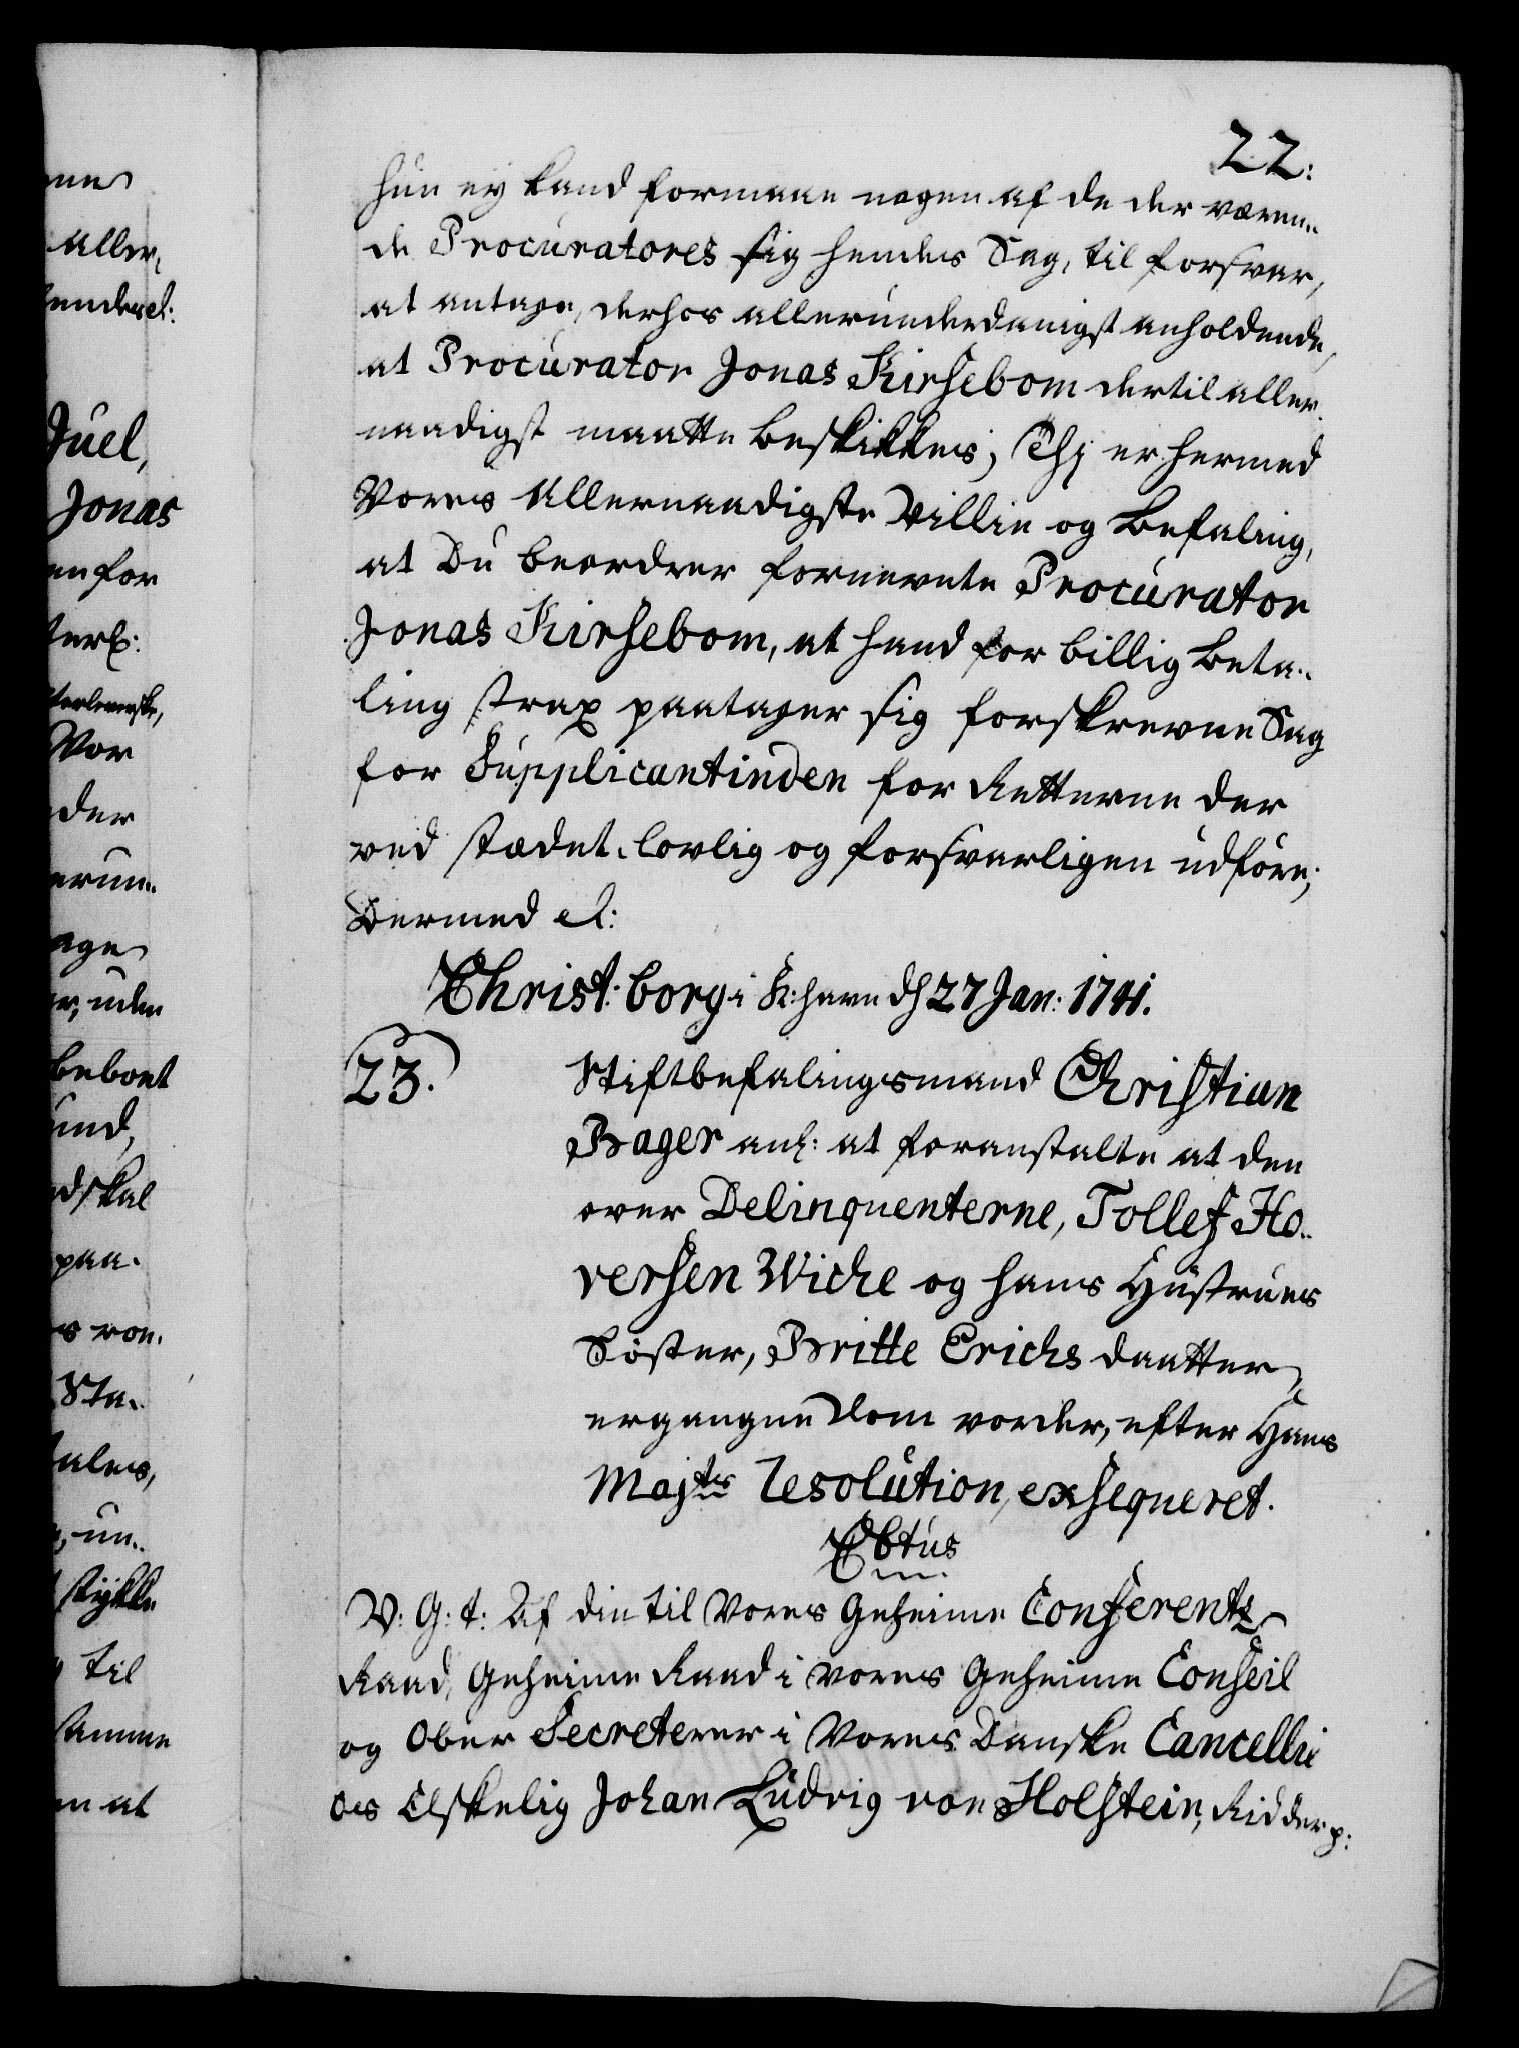 22:
hun ey kand formaae nogen af de der væren„
de Procuratores sig hendes Sag, til forsvar,
at antage, derhos allerunderdanigst anholdende,
at Procurator Jonas Kirsebom dertil aller
naadigst maatte beskikkes; Thj er hermed
Vores Allernaadigste Villie og Befaling,
at Du beordrer fornevnte Procurator
Jonas Kirsebom, at hand for billig beta„
ling strax paatager sig forskrevne Sag
for Supplicantinden for Retterne der
ved stædet, lovlig og forsvarligen udføre;
Dermed el:
Christ: borg i K:havn dh 27 Jan: 1741.
23.
Stiftbefalingsmand Christian
Bager anl: at foranstalte at den
over Delinquenterne, Tollef Ho„
versen Wiche og hans Hustrues
Søster, Britte Erichs daatter,
ergangne Dom vorder, efter Hans
Majtes Resolution, exseqveret.
Cbtus
V: G: t: Af din til Vores Geheime Conferentz
Raad, Geheime Raad i vores Geheime Conseil
og Ober Secreterer i Vores Danske Cancellie
Os Elskelig Johan Ludvig von Holstein, Ridder p:
nne
Aller„
endes el:
Juel,
Jonas
en for
terl:
terleverske,
Vor
der
erun„
age
r, uden
beboet
und,
dskal
paa„
s von
Sta„
tales,
, un„
stykke
til
samme
en at